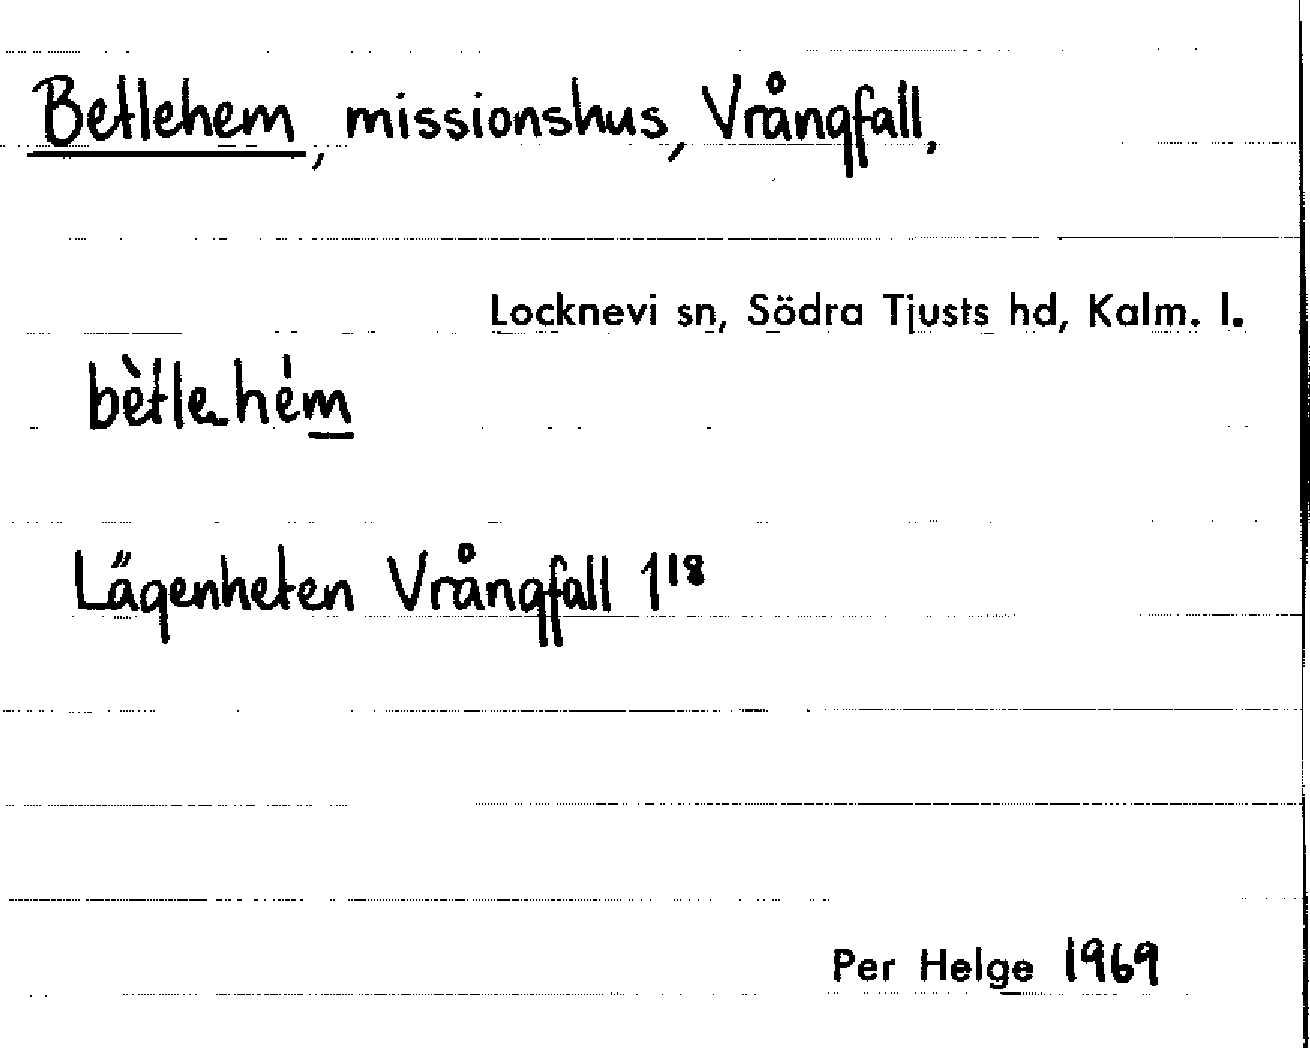 Betlehem, missionshus, Vrångfall.
Locknevi sn, Södra Tjusts hd, Kalm. l.
bètlehém
Lägenheten Vrångfall 1¹⁸
Per Helge 1969